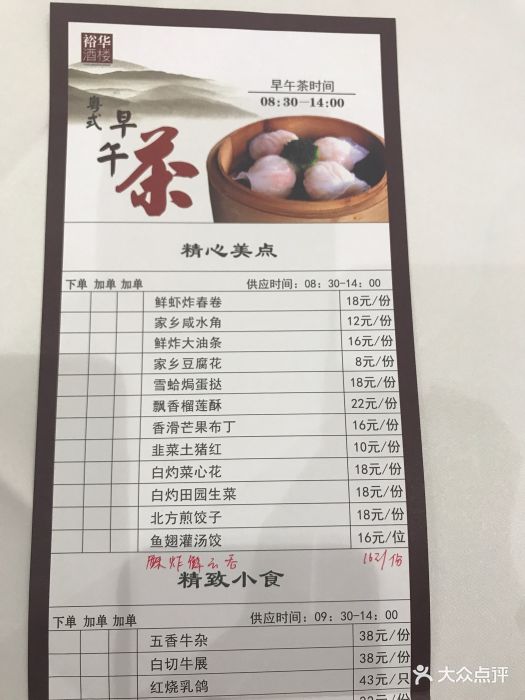 裕华
酒楼
粤式
早午
茶
早午茶时间
08:30-14:00
精心美点
下单 加单 加单 供应时间：08：30-14：00
鲜虾炸春卷 18元/份
家乡咸水角 12元/份
鲜炸大油条 16元/份
家乡豆腐花 8元/份
雪蛤焗蛋挞 18元/份
飘香榴莲酥 22元/份
香滑芒果布丁 16元/份
韭菜土猪红 10元/份
白灼菜心花 18元/份
白灼田园生菜 18元/份
北方煎饺子 18元/份
鱼翅灌汤饺 16元/位
酥炸鲜云吞 16元/份
精致小食
下单 加单 加单 供应时间：09：30-14：00
五香牛杂 38元/份
白切牛展 38元/份
红烧乳鸽 43元/只
大众点评